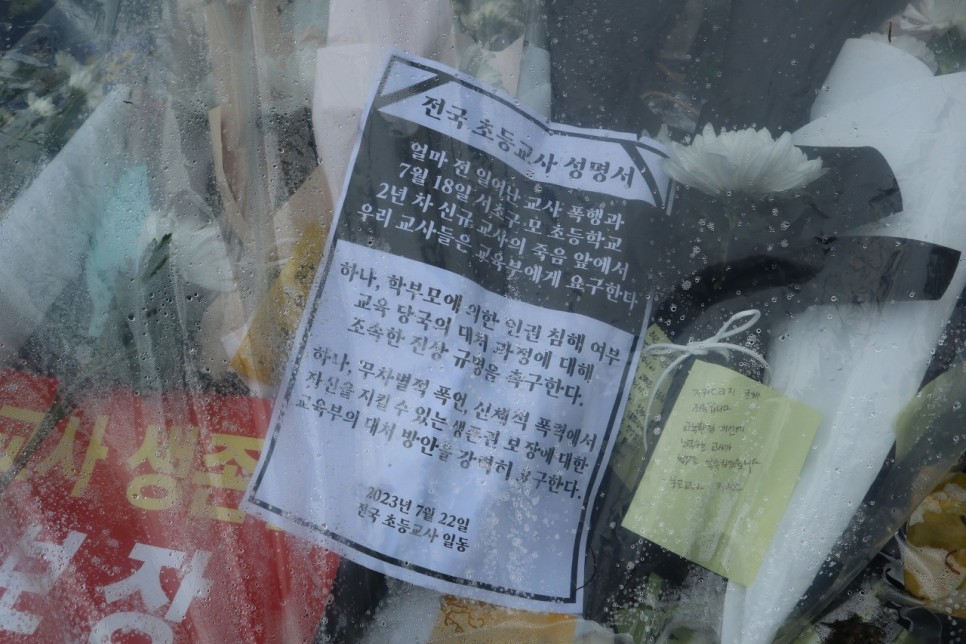 전국 초등교사 성명서
얼마 전 일어난 교사 폭행과
7월 18일 서초구 모 초등학교
2년 차 신규 교사의 죽음 앞에서
우리 교사들은 교육부에게 요구한다
하나, 학부모에 의한 인권 침해 여부
교육 당국의 대처 과정에 대해
조속한 진상 규명을 촉구한다.
하나, 무차별적 폭언, 신체적 폭력에서
자신을 지킬 수 있는 생존권 보장에 대한
교육부의 대처 방안을 강력히 요구한다.
2023년 7월 22일
전국 초등교사 일동
교사 생존
보장